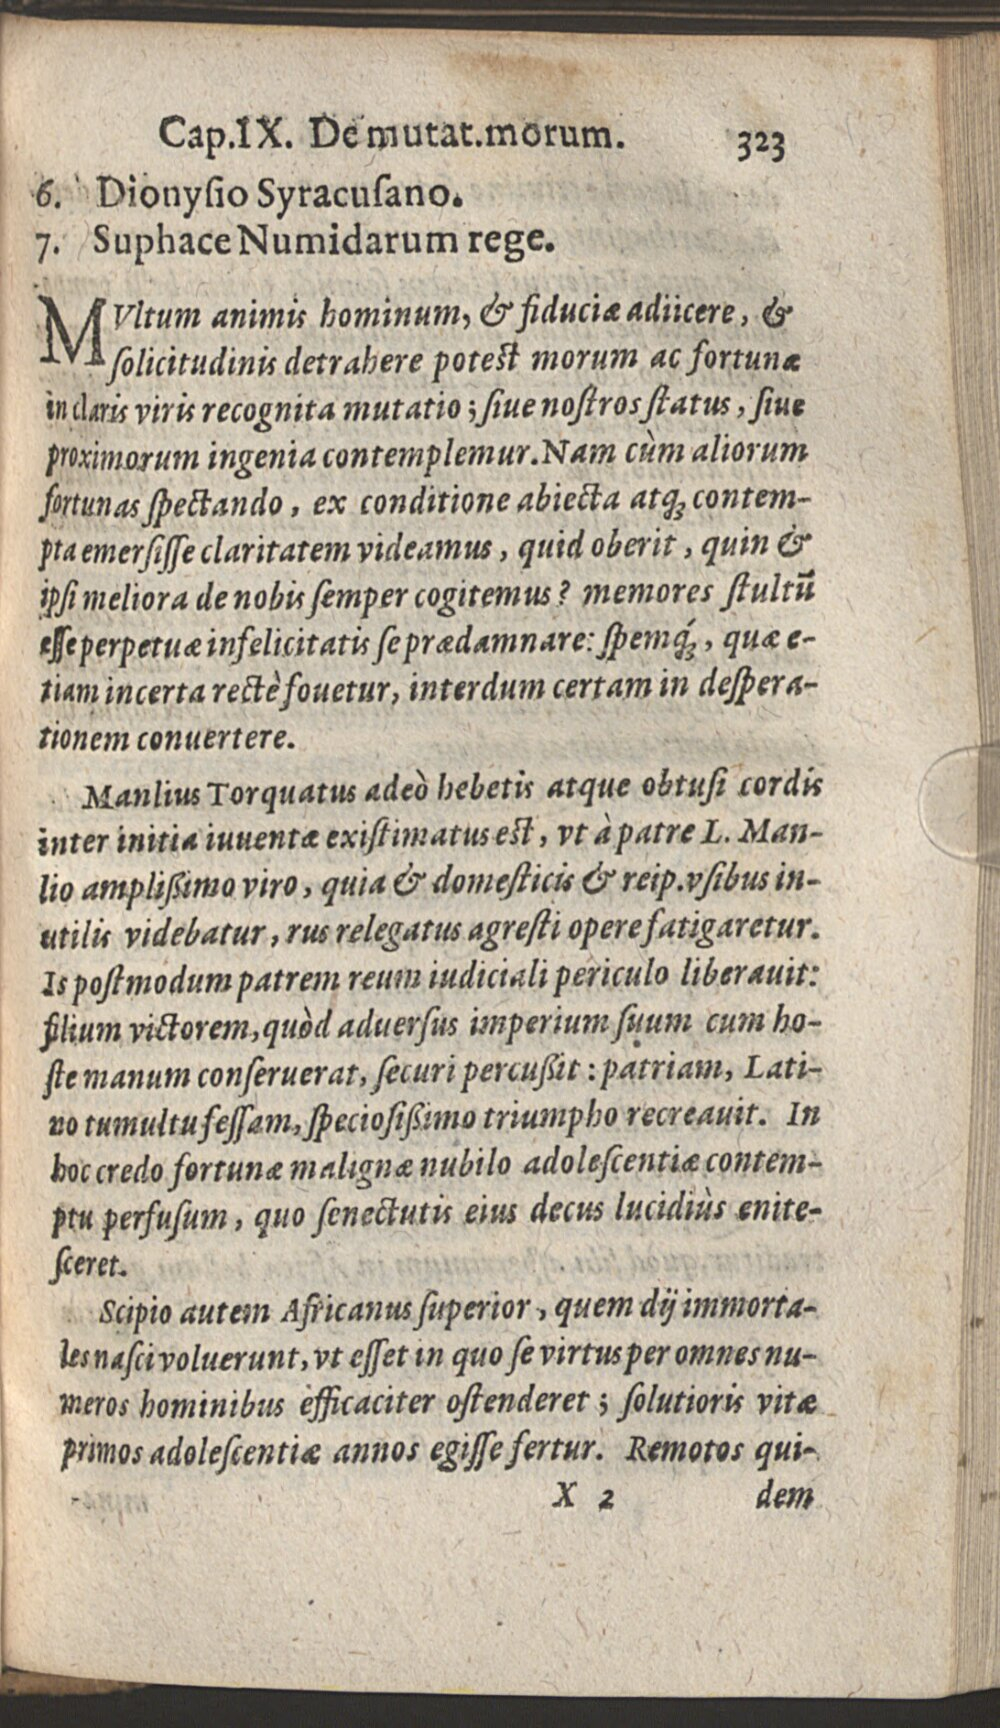 Cap.IX. De mutat.morum. 323
6. Dionyſio Syracuſano.
7. Suphace Numidarum rege.
MVltum animis hominum, & fiduciæ adiicere, &
ſolicitudinis detrahere poteſt morum ac fortunæ
in claris viris recognita mutatio; ſiue noſtros ſtatus, ſiue
proximorum ingenia contemplemur. Nam cùm aliorum
fortunas ſpectando, ex conditione abiecta atq; contem-
pta emerſiſſe claritatem videamus, quid oberit, quin &
ipſi meliora de nobis ſemper cogitemus? memores ſtultū
eſſe perpetuæ infelicitatis ſe prædamnare: ſpemq́;, quæ e-
tiam incerta rectè fouetur, interdum certam in deſpera-
tionem conuertere.
Manlius Torquatus adeò hebetis atque obtuſi cordis
inter initia iuuentæ exiſtimatus eſt, vt à patre L. Man-
lio amplißimo viro, quia & domeſticis & reip. vſibus in-
utilis videbatur, rus relegatus agreſti opere fatigaretur.
Is poſtmodum patrem reum iudiciali periculo liberauit:
filium victorem, quòd aduerſus imperium ſuum cum ho-
ſte manum conſeruerat, ſecuri percußit: patriam, Lati-
no tumultu feſſam, ſpecioſißimo triumpho recreauit. In
hoc credo fortunæ malignæ nubilo adoleſcentiæ contem-
ptu perfuſum, quo ſenectutis eius decus lucidiùs enite-
ſceret.
Scipio autem Africanus ſuperior, quem dij immorta-
les naſci voluerunt, vt eſſet in quo ſe virtus per omnes nu-
meros hominibus efficaciter oſtenderet; ſolutioris vitæ
primos adoleſcentiæ annos egiſſe fertur. Remotos qui-
X 2 dem